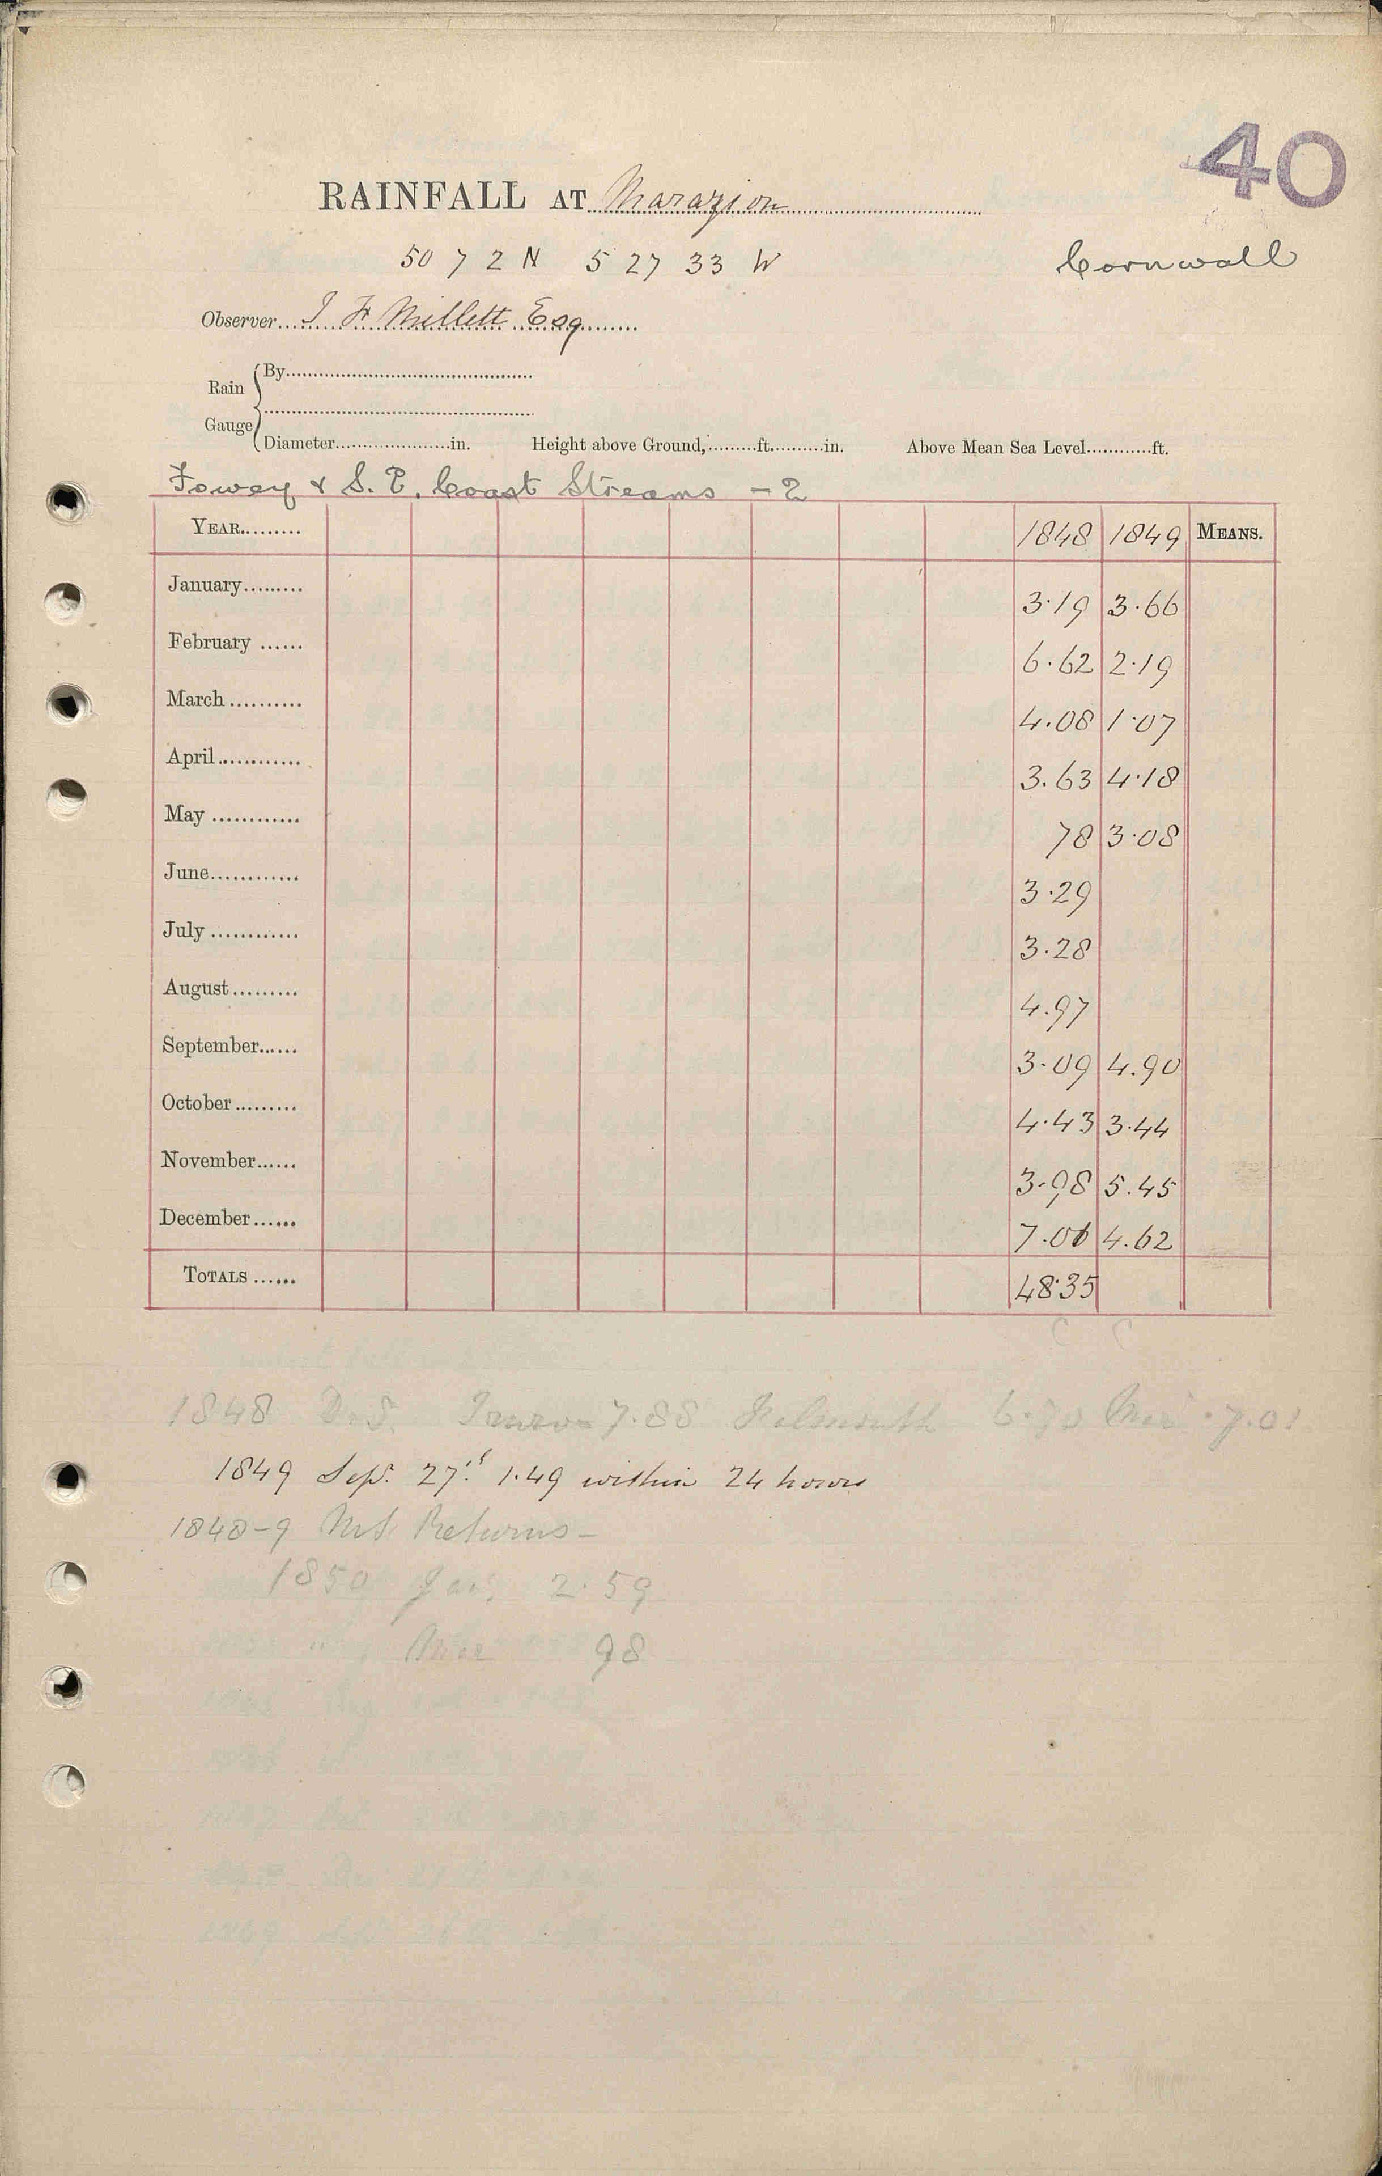 40
RAINFALL AT Marazion
50 7 2 N 5 27 33 W
Cornwall
Observer J F Millett Esq
Rain Gauge
By
Diameter in. Height above Ground, ft. in. Above Mean Sea Level ft.
Fowey & S. E. Coast Streams - 2
YEAR 1848 1849 MEANS.
January 3.19 3.66
February 6.62 2.19
March 4.08 1.07
April 3.63 4.18
May 78 3.08
June 3.29
July 3.28
August 4.97
September 3.09 4.90
October 4.43 3.44
November 3.98 5.45
December 7.01 4.62
TOTALS 48.35
C C
1848 Truro 7.88 Falmouth 6.70 7.01
1849 Sep. 27th 1.49 within 24 hours
1848-9 Returns -
1850 Jan 2.59
Mar 98